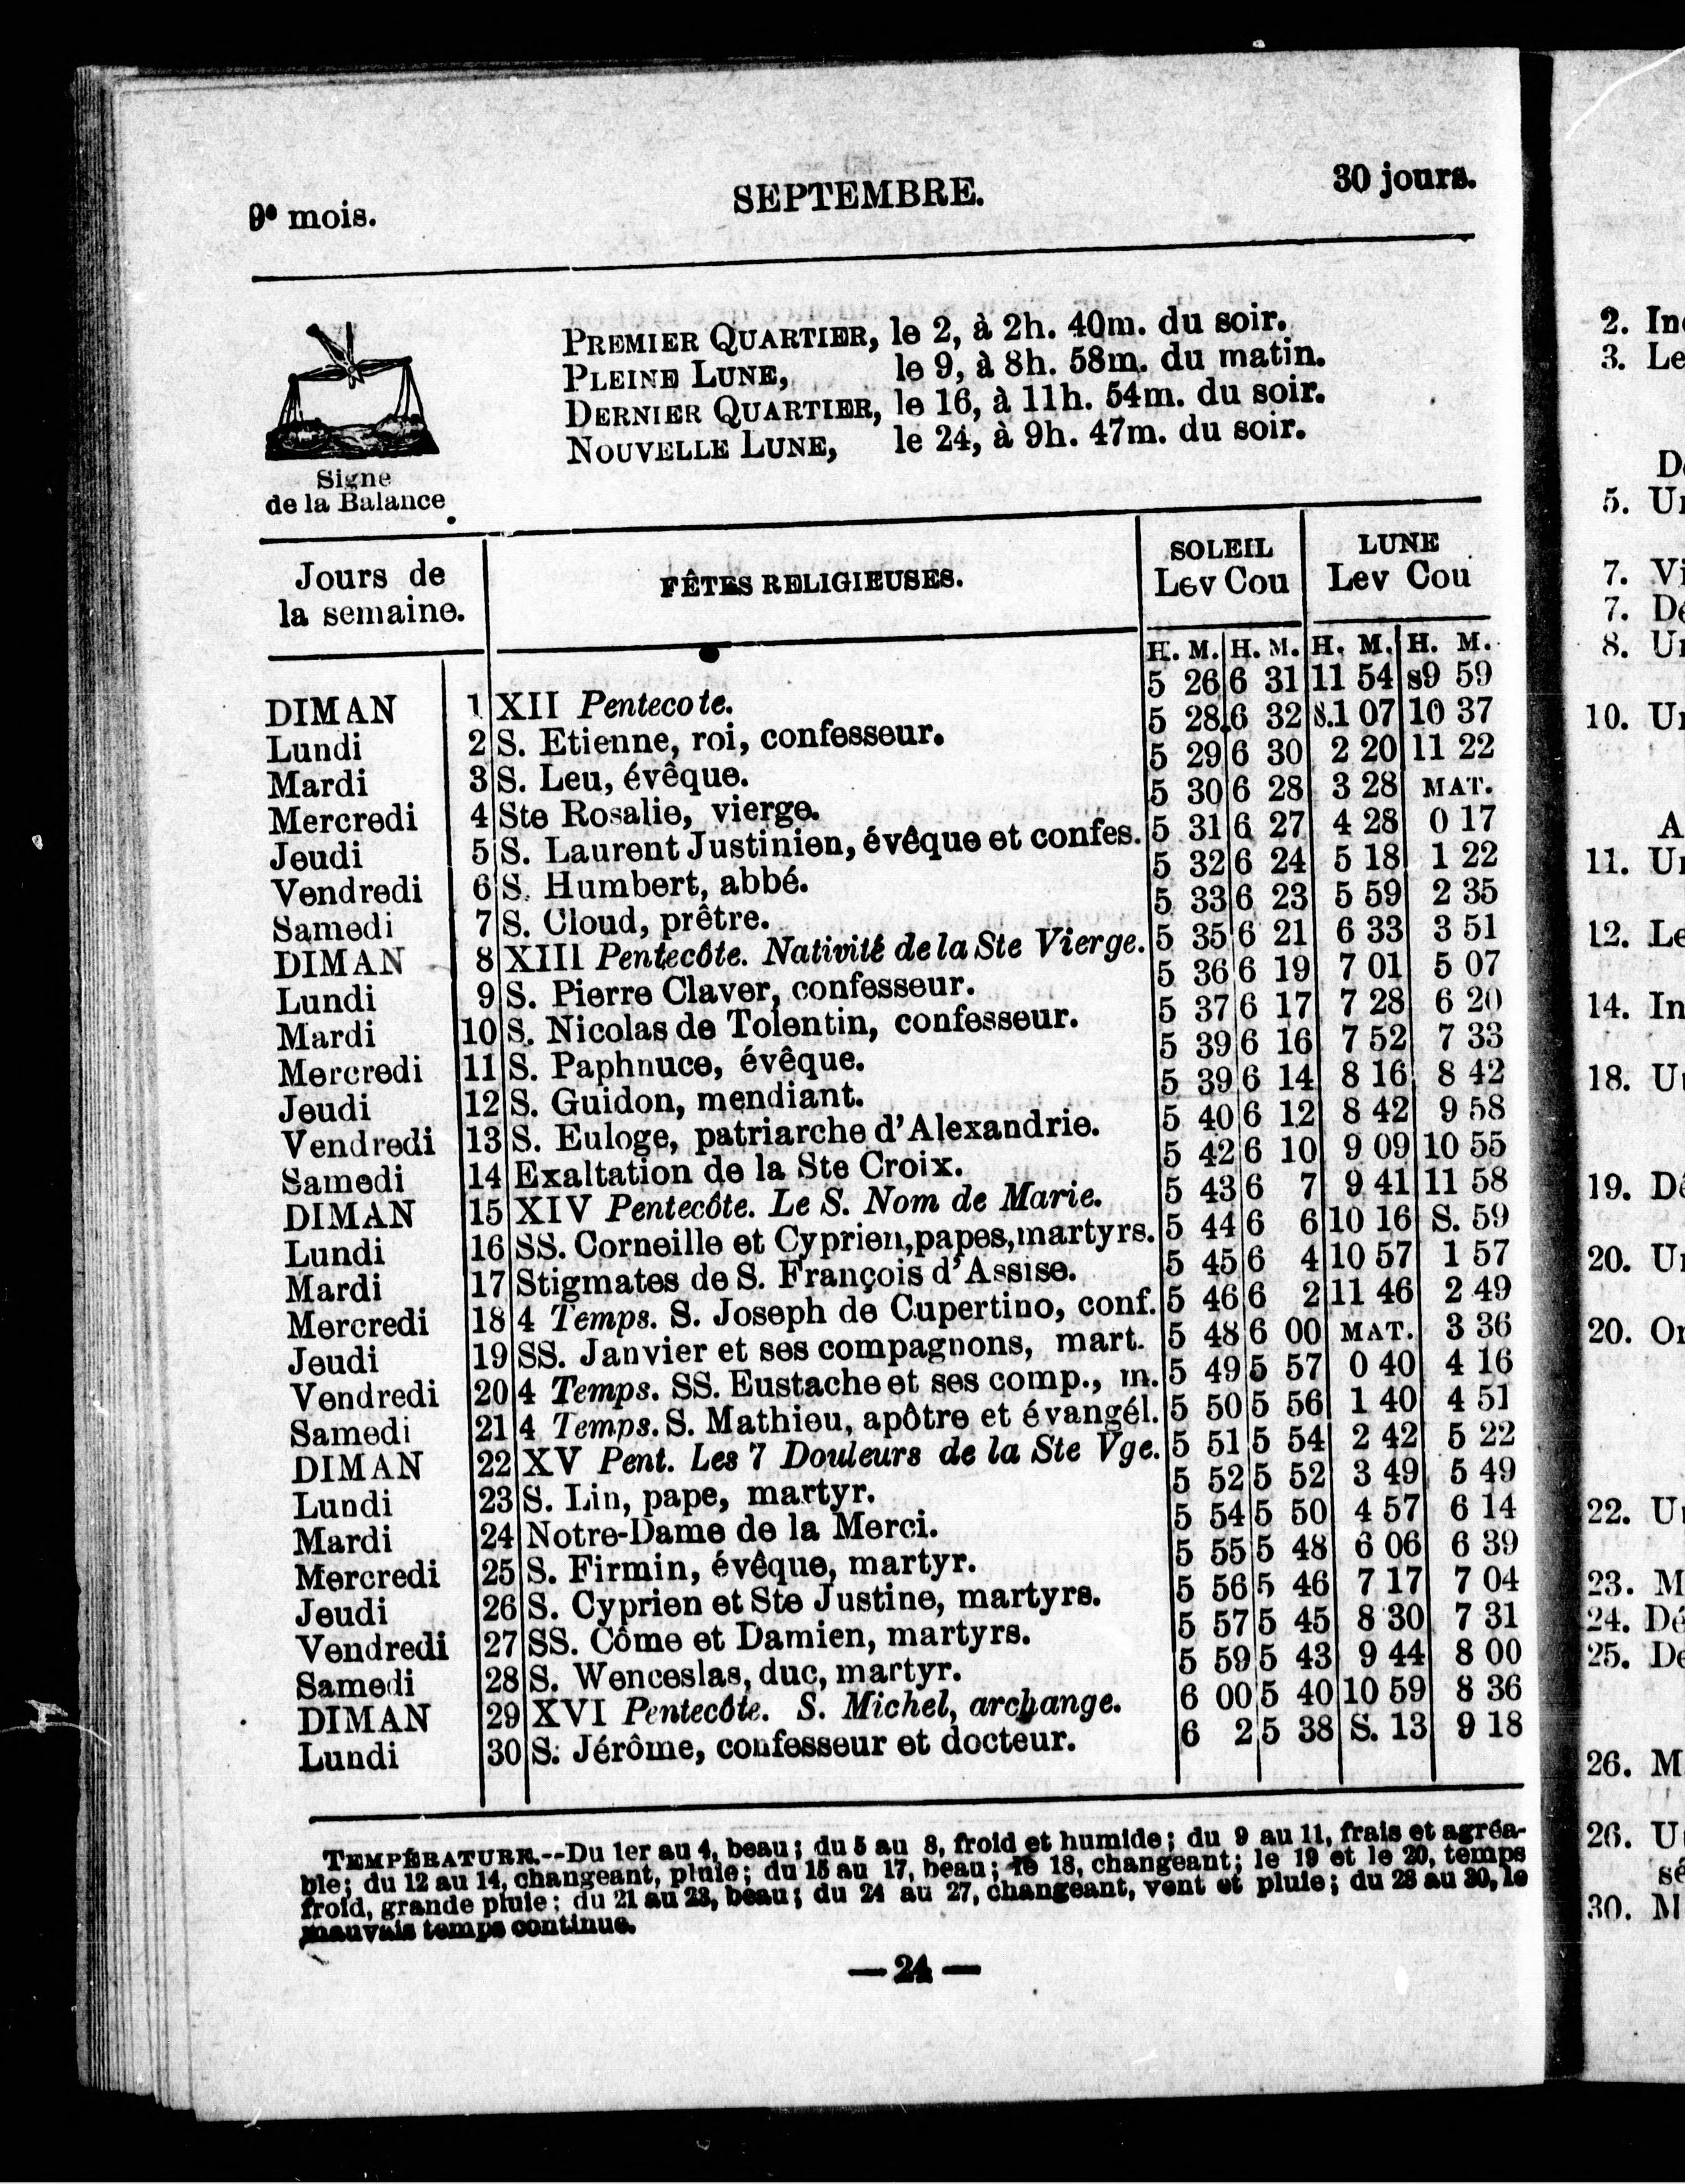 9e mois. SEPTEMBRE. 30 jours.
PREMIER QUARTIER, le 2, à 2h. 40m. du soir.
PLEINE LUNE, le 9, à 8h. 58m. du matin.
DERNIER QUARTIER, le 16, à 11h. 54m. du soir.
NOUVELLE LUNE, le 24, à 9h. 47m. du soir.
Signe
de la Balance
Jours de la semaine. FÊTES RELIGIEUSES. SOLEIL Lev Cou LUNE Lev Cou
H. M. H. M. H. M. H. M.
DIMAN 1 XII Pentecote. 5 26 6 31 11 54 s9 59
Lundi 2 S. Etienne, roi, confesseur. 5 28 6 32 S.1 07 10 37
Mardi 3 S. Leu, évêque. 5 29 6 30 2 20 11 22
Mercredi 4 Ste Rosalie, vierge. 5 30 6 28 3 28 MAT.
Jeudi 5 S. Laurent Justinien, évêque et confes. 5 31 6 27 4 28 0 17
Vendredi 6 S. Humbert, abbé. 5 32 6 24 5 18 1 22
Samedi 7 S. Cloud, prêtre. 5 33 6 23 5 59 2 35
DIMAN 8 XIII Pentecôte. Nativité de la Ste Vierge. 5 35 6 21 6 33 3 51
Lundi 9 S. Pierre Claver, confesseur. 5 36 6 19 7 01 5 07
Mardi 10 S. Nicolas de Tolentin, confesseur. 5 37 6 17 7 28 6 20
Mercredi 11 S. Paphnuce, évêque. 5 39 6 16 7 52 7 33
Jeudi 12 S. Guidon, mendiant. 5 39 6 14 8 16 8 42
Vendredi 13 S. Euloge, patriarche d'Alexandrie. 5 40 6 12 8 42 9 58
Samedi 14 Exaltation de la Ste Croix. 5 42 6 10 9 09 10 55
DIMAN 15 XIV Pentecôte. Le S. Nom de Marie. 5 43 6 7 9 41 11 58
Lundi 16 SS. Corneille et Cyprien, papes, martyrs. 5 44 6 6 10 16 S. 59
Mardi 17 Stigmates de S. François d'Assise. 5 45 6 4 10 57 1 57
Mercredi 18 4 Temps. S. Joseph de Cupertino, conf. 5 46 6 2 11 46 2 49
Jeudi 19 SS. Janvier et ses compagnons, mart. 5 48 6 00 MAT. 3 36
Vendredi 20 4 Temps. SS. Eustache et ses comp., m. 5 49 5 57 0 40 4 16
Samedi 21 4 Temps. S. Mathieu, apôtre et évangél. 5 50 5 56 1 40 4 51
DIMAN 22 XV Pent. Les 7 Douleurs de la Ste Vge. 5 51 5 54 2 42 5 22
Lundi 23 S. Lin, pape, martyr. 5 52 5 52 3 49 5 49
Mardi 24 Notre-Dame de la Merci. 5 54 5 50 4 57 6 14
Mercredi 25 S. Firmin, évêque, martyr. 5 55 5 48 6 06 6 39
Jeudi 26 S. Cyprien et Ste Justine, martyrs. 5 56 5 46 7 17 7 04
Vendredi 27 SS. Côme et Damien, martyrs. 5 57 5 45 8 30 7 31
Samedi 28 S. Wenceslas, duc, martyr. 5 59 5 43 9 44 8 00
DIMAN 29 XVI Pentecôte. S. Michel, archange. 6 00 5 40 10 59 8 36
Lundi 30 S. Jérôme, confesseur et docteur. 6 2 5 38 S. 13 9 18
TEMPÉRATURE.--Du 1er au 4, beau; du 5 au 8, froid et humide; du 9 au 11, frais et agréa-
ble; du 12 au 14, changeant, pluie; du 15 au 17, beau; le 18, changeant; le 19 et le 20, temps
froid, grande pluie; du 21 au 23, beau; du 24 au 27, changeant, vent et pluie; du 28 au 30, le
mauvais temps continue.
— 24 —
2.
3. Le
5.
7.
7.
8.
10.
11.
12. Le
14.
18.
19.
20.
20.
22.
23.
24.
25.
26.
26.
30.